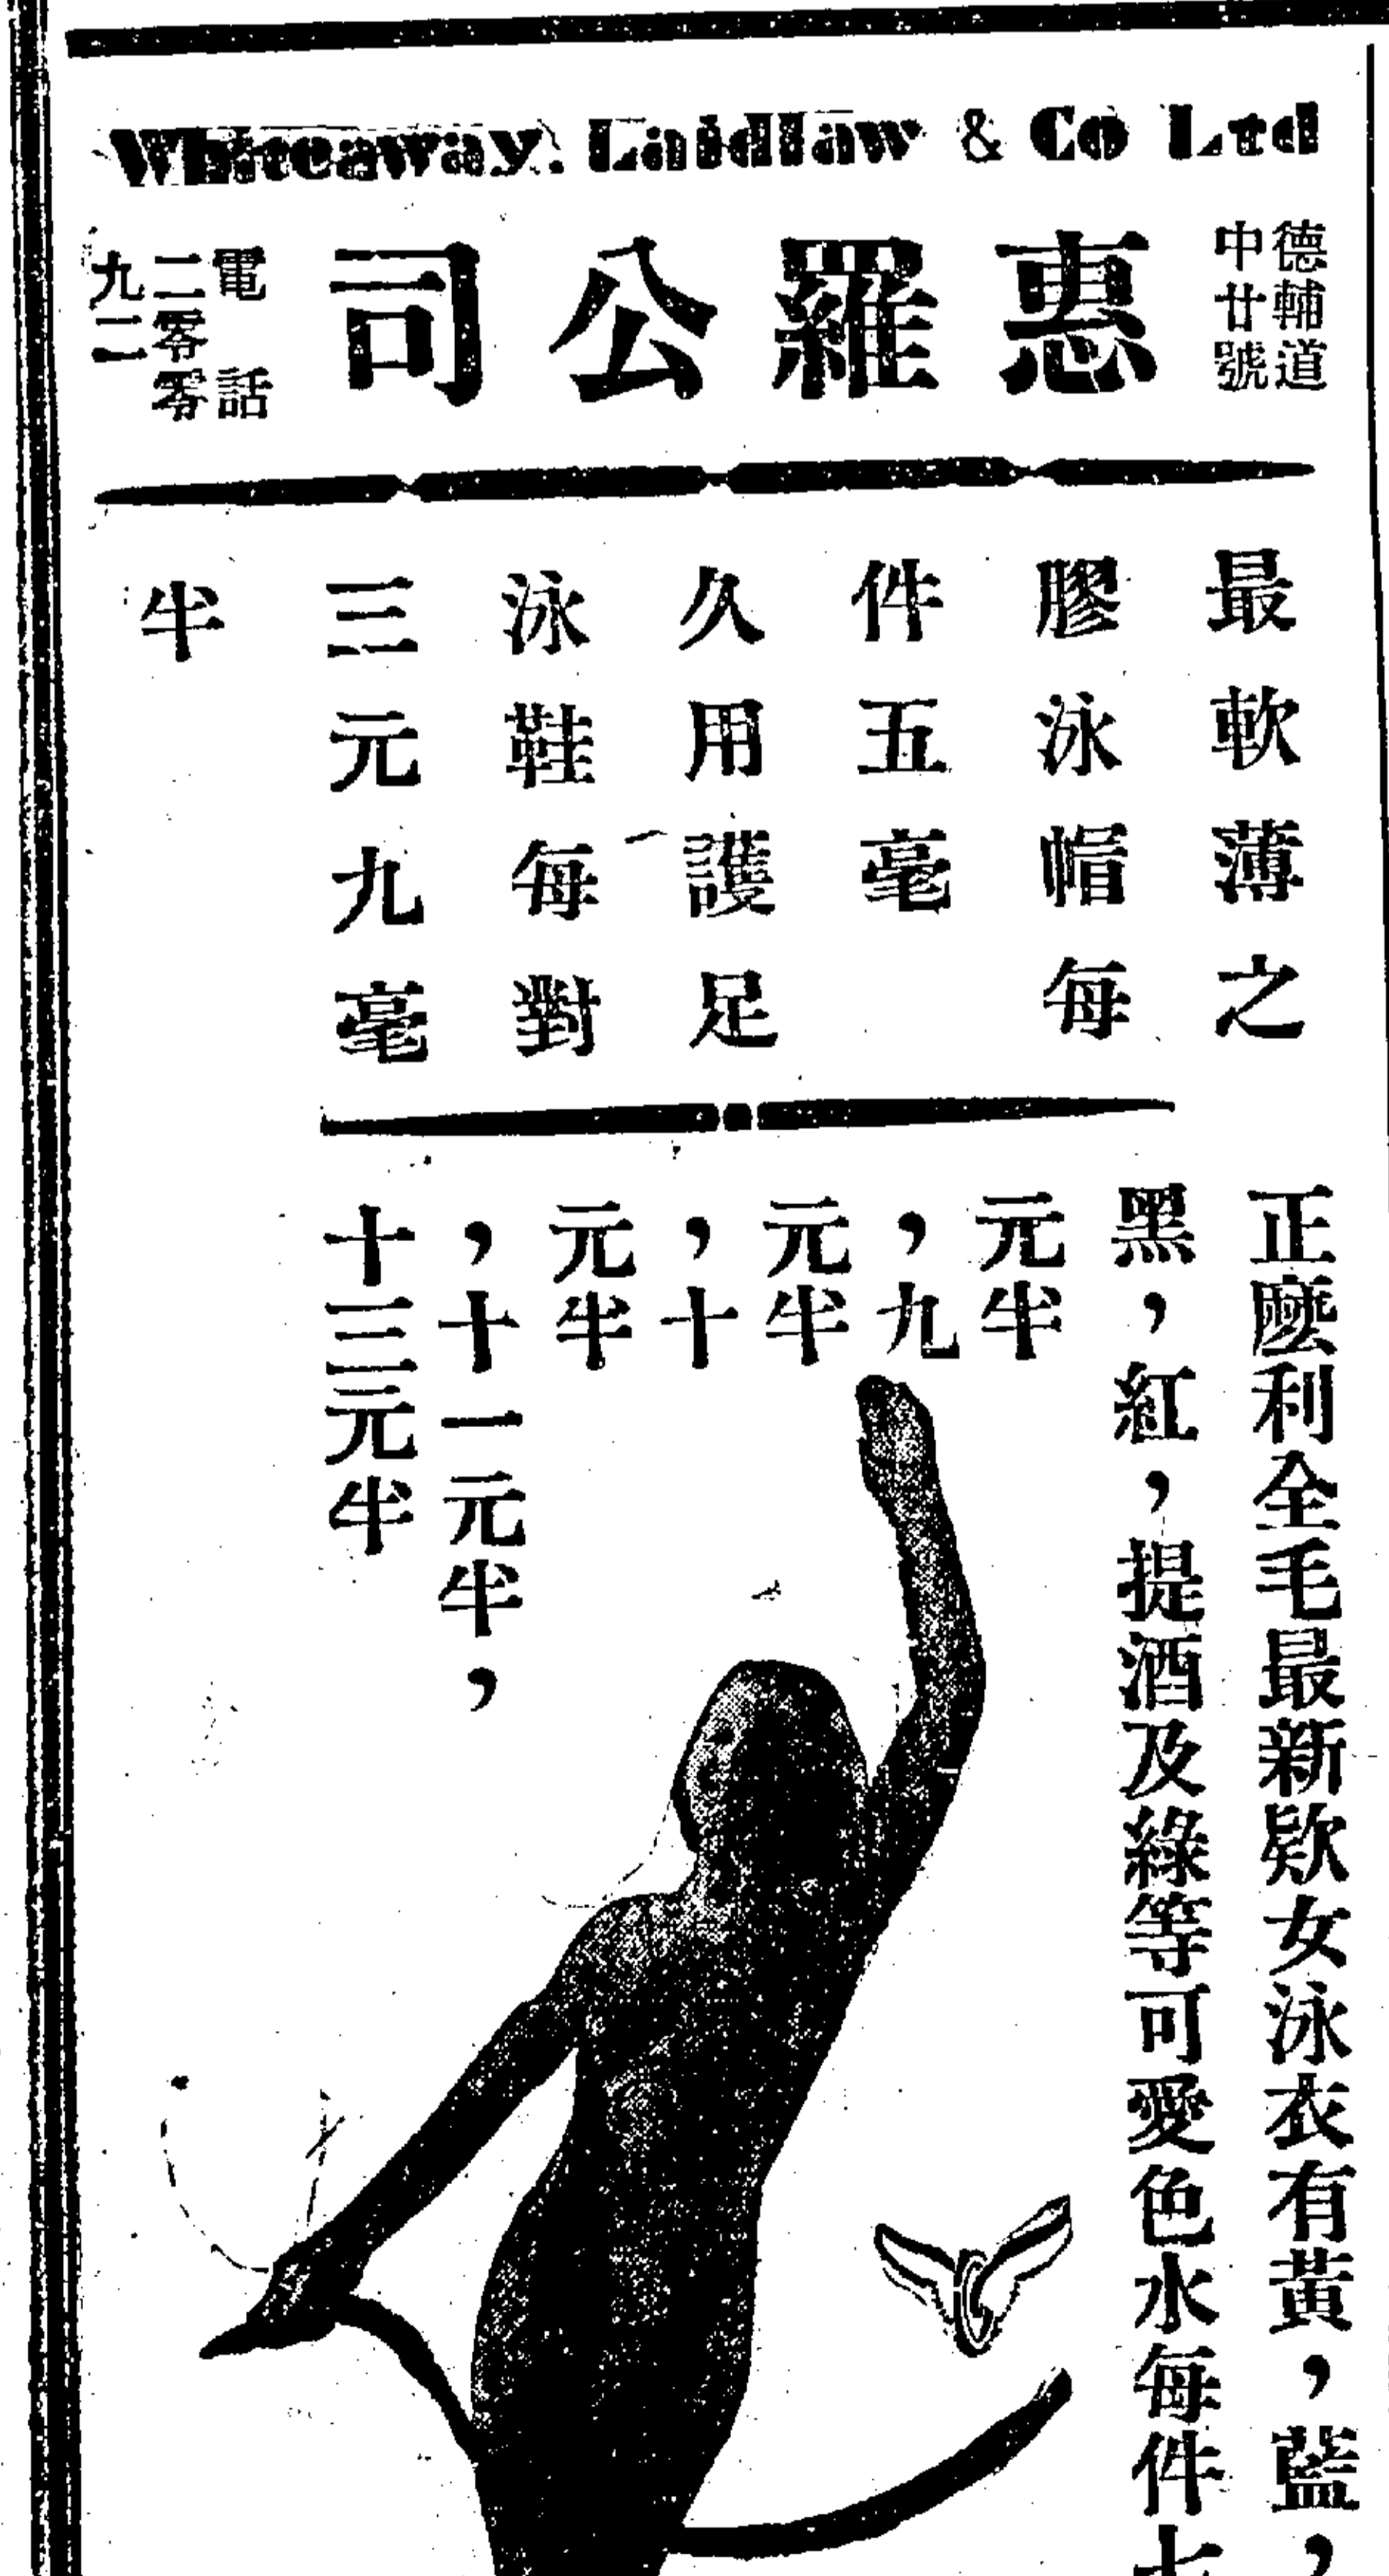 Whiteaway. Laidlaw & Co Ltd
德輔道
中廿號
惠羅公司
電話
二零零
九二
最軟薄之
膠泳帽每
件五毫
久用護足
泳鞋每對
三元九毫
半
正麽利全毛最新欵女泳衣有黃，藍，
黑，紅，提酒及綠等可愛色水每件七
元半
，九
元半
，十
元半
，十一元半，
十三元半